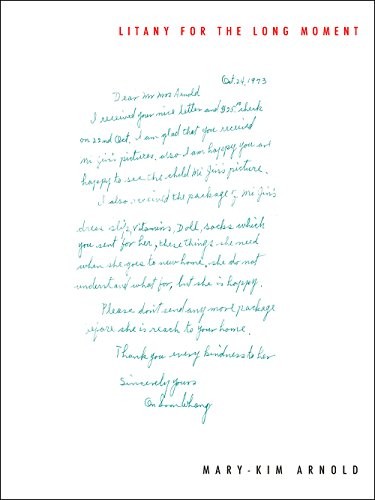 LITANY FOR THE LONG MOMENT
Oct. 24, 1973
Dear Mr Mrs Arnold
I received your nice letter and $25.00 check
on 22nd Oct. I am glad that you received
Mi Jin's pictures, also I am happy you are
happy to see the child Mi Jin's picture.
I also received the package of Mi Jin's
dress slip, vitamins, Doll, socks which
you sent for her, these things she need
when she goes to new home, she do not
understand what for, but she is happy.
Please don't send any more package
before she is reach to your home.
Thank you every kindness to her
Sincerely yours
MARY-KIM ARNOLD